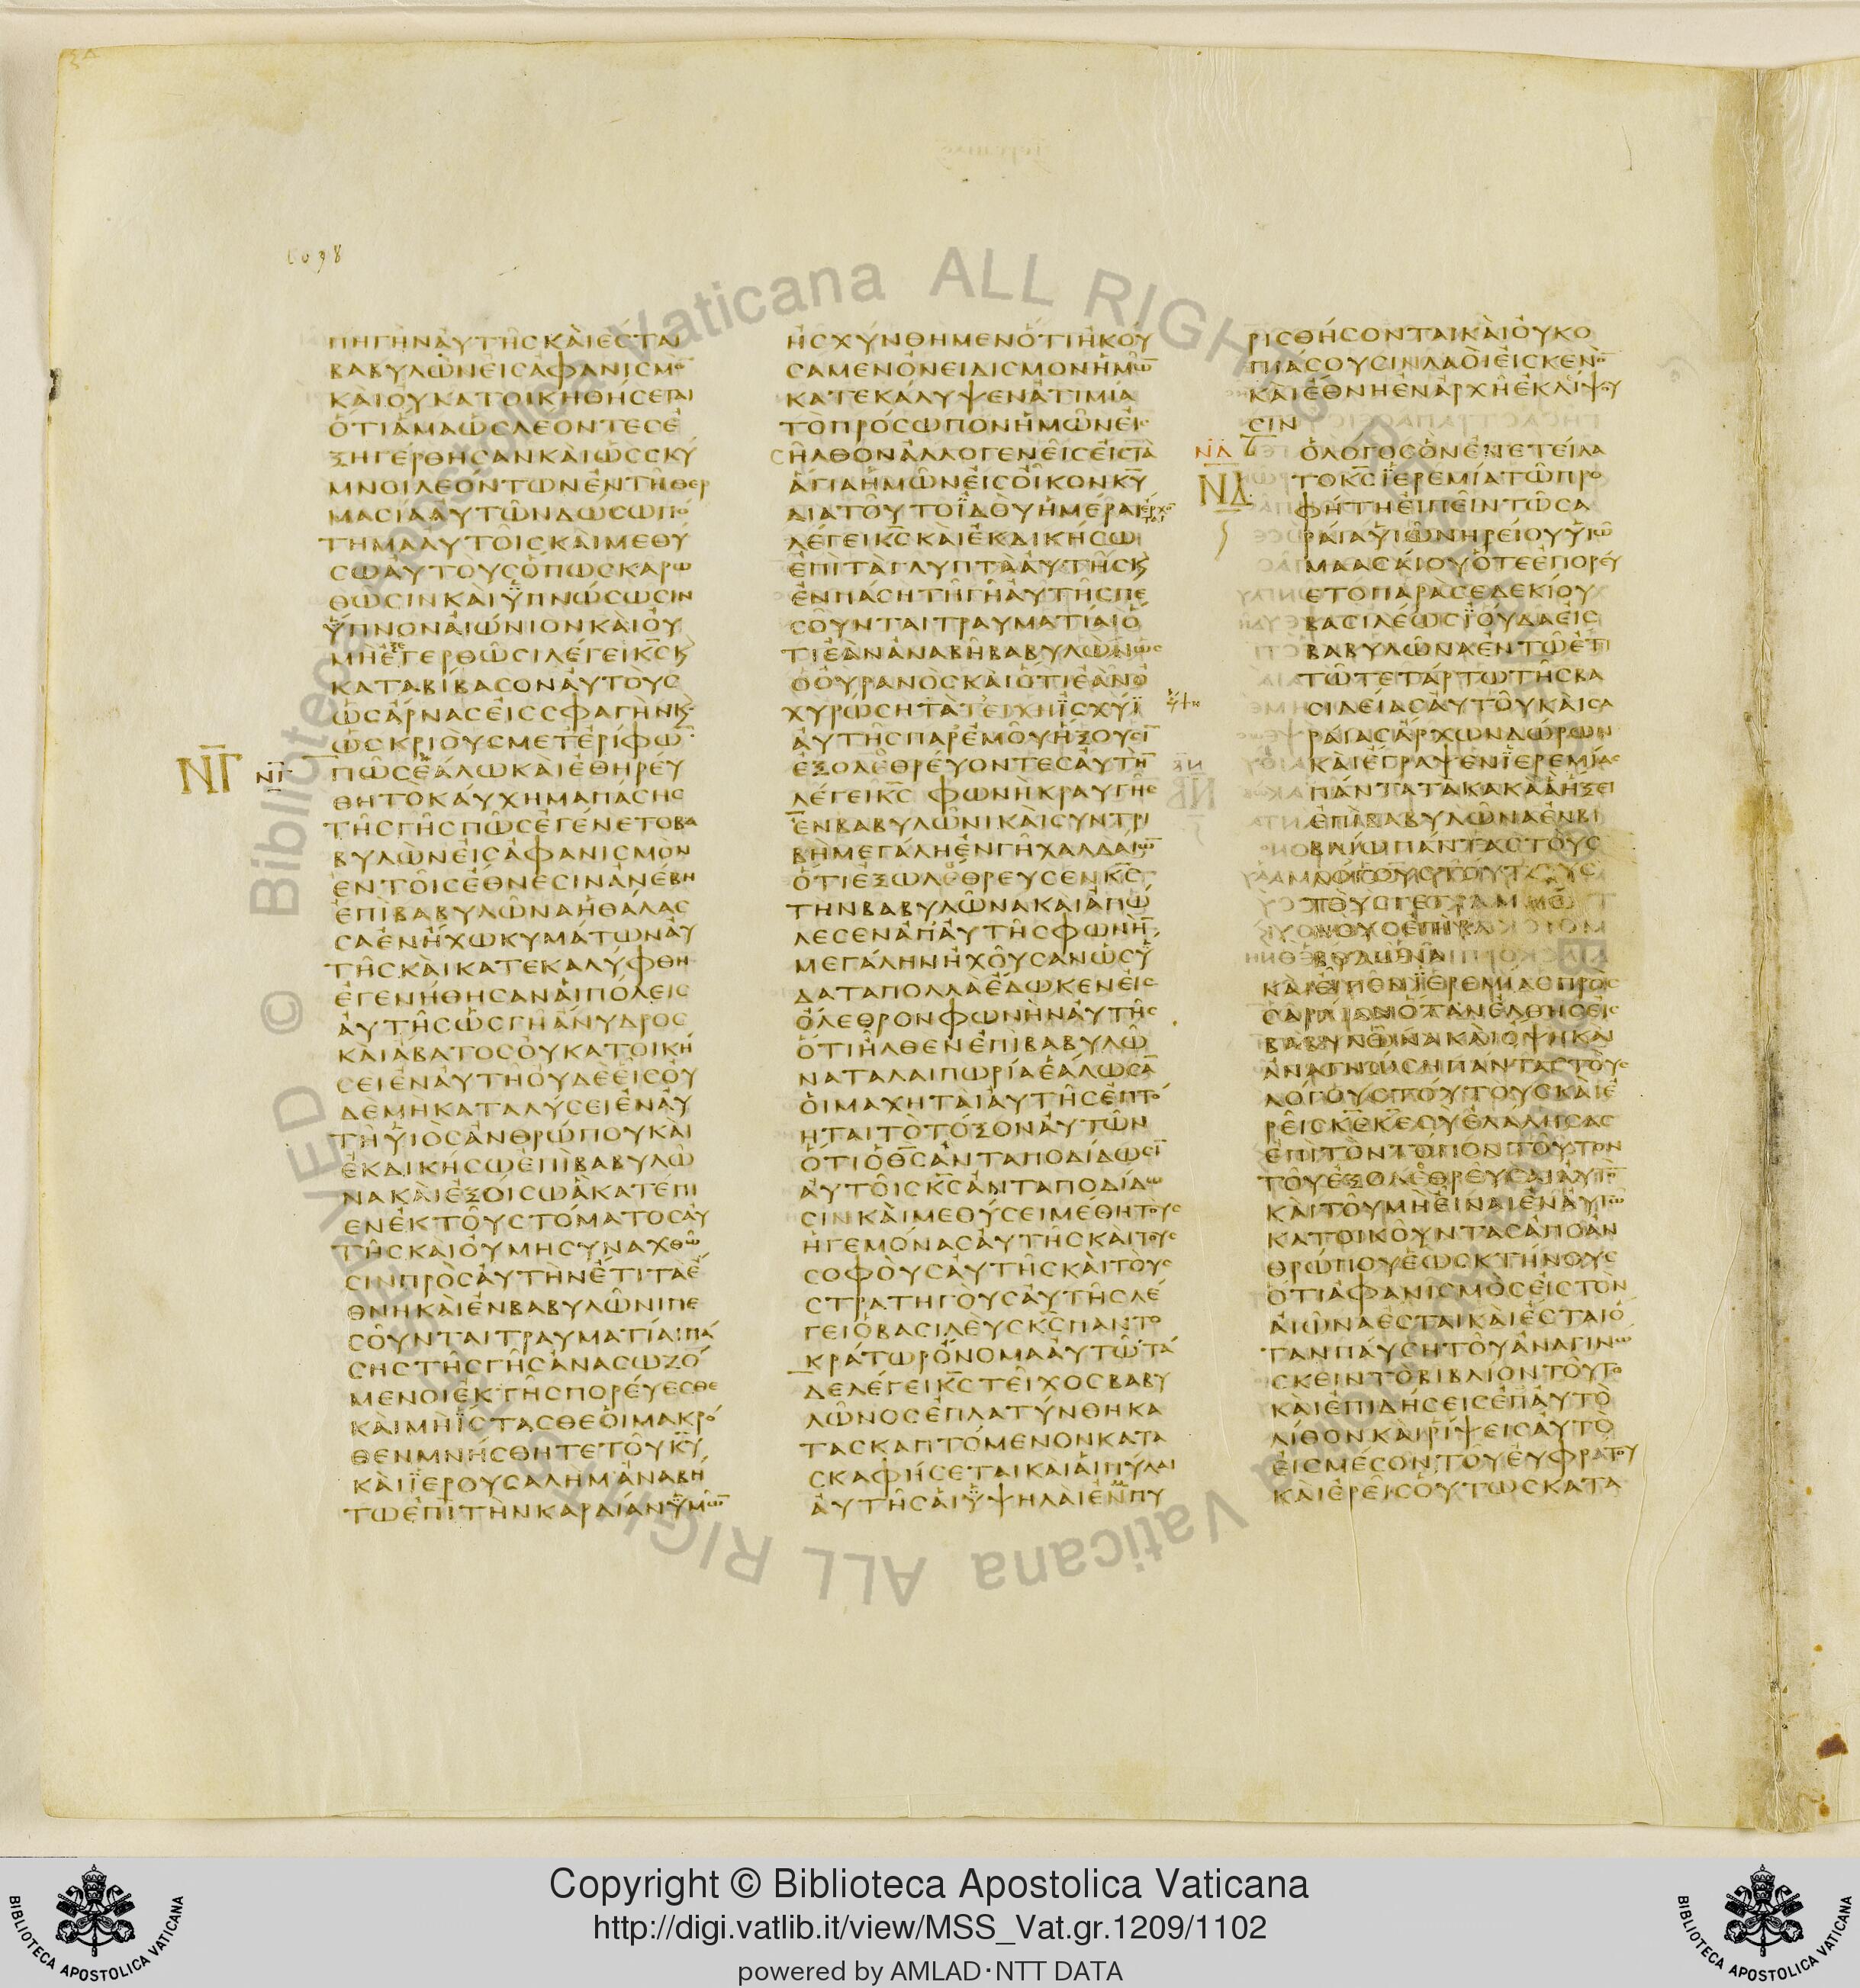 1098
ΠΗΓΗΝΑΥΤΗΣΚΑΙΕΣΤΑΙ
ΒΑΒΥΛΩΝΕΙΣΑΦΑΝΙΣΜΟ̅
ΚΑΙΟΥΚΑΤΟΙΚΗΘΗΣΕΤΑΙ
ΟΤΙΑΜΑΩΣΛΕΟΝΤΕΣΕ
ΞΗΓΕΡΘΗΣΑΝΚΑΙΩΣΣΚΥ
ΜΝΟΙΛΕΟΝΤΩΝΕΝΤΗΘΕΡ
ΜΑΣΙΑΑΥΤΩΝΔΩΣΩΠΟ
ΤΗΜΑΑΥΤΟΙΣΚΑΙΜΕΘΥ
ΣΩΑΥΤΟΥΣΟΠΩΣΚΑΡΩ
ΘΩΣΙΝΚΑΙΥΠΝΩΣΩΣΙΝ
ΥΠΝΟΝΑΙΩΝΙΟΝΚΑΙΟΥ
ΜΗΕΓΕΡΘΩΣΙΛΕΓΕΙΚ̅Σ̅Κ
ΚΑΤΑΒΙΒΑΣΟΝΑΥΤΟΥΣ
ΩΣΑΡΝΑΣΕΙΣΣΦΑΓΗΝΚ
ΩΣΚΡΙΟΥΣΜΕΤΕΡΙΦΩ̅
ΝΓ ΝΓ ΠΩΣΕΑΛΩΚΑΙΕΘΗΡΕΥ
ΘΗΤΟΚΑΥΧΗΜΑΠΑΣΗΣ
ΤΗΣΓΗΣΠΩΣΕΓΕΝΕΤΟΒΑ
ΒΥΛΩΝΕΙΣΑΦΑΝΙΣΜΟΝ
ΕΝΤΟΙΣΕΘΝΕΣΙΝΑΝΕΒΗ
ΕΠΙΒΑΒΥΛΩΝΑΗΘΑΛΑΣ
ΣΑΕΝΗΧΩΚΥΜΑΤΩΝΑΥ
ΤΗΣΚΑΙΚΑΤΕΚΑΛΥΦΘΗ
ΕΓΕΝΗΘΗΣΑΝΑΙΠΟΛΕΙΣ
ΑΥΤΗΣΩΣΓΗΑΝΥΔΡΟΣ
ΚΑΙΑΒΑΤΟΣΟΥΚΑΤΟΙΚΗ
ΣΕΙΕΝΑΥΤΗΟΥΔΕΕΙΣΟΥ
ΔΕΜΗΚΑΤΑΛΥΣΕΙΕΝΑΥ
ΤΗΥΙΟΣΑΝΘΡΩΠΟΥΚΑΙ
ΕΚΔΙΚΗΣΩΕΠΙΒΑΒΥΛΩ
ΝΑΚΑΙΕΞΟΙΣΩΑΚΑΤΕΠΙ
ΕΝΕΚΤΟΥΣΤΟΜΑΤΟΣΑΥ
ΤΗΣΚΑΙΟΥΜΗΣΥΝΑΧΘΩ
ΣΙΝΠΡΟΣΑΥΤΗΝΕΤΙΤΑΕ
ΘΝΗΚΑΙΕΝΒΑΒΥΛΩΝΙΠΕ
ΣΟΥΝΤΑΙΤΡΑΥΜΑΤΙΑΙΠΑ
ΣΗΣΤΗΣΓΗΣΑΝΑΣΩΖΟ
ΜΕΝΟΙΕΚΓΗΣΠΟΡΕΥΕΣΘΕ
ΚΑΙΜΗΙΣΤΑΣΘΕΟΙΜΑΚΡΟ
ΘΕΝΜΝΗΣΘΗΤΕΤΟΥΚ̅Υ̅
ΚΑΙΙΕΡΟΥΣΑΛΗΜΑΝΑΒΗ
ΤΩΕΠΙΤΗΝΚΑΡΔΙΑΝΥΜΩ̅
ΗΣΧΥΝΘΗΜΕΝΟΤΙΗΚΟΥ
ΣΑΜΕΝΟΝΕΙΔΙΣΜΟΝΗΜΩ̅
ΚΑΤΕΚΑΛΥΨΕΝΑΤΙΜΙΑ
ΤΟΠΡΟΣΩΠΟΝΗΜΩΝΕΙ
ΣΗΛΘΟΝΑΛΛΟΓΕΝΕΙΣΕΙΣΤΑ
ΑΓΙΑΗΜΩΝΕΙΣΟΙΚΟΝΚ̅Υ̅
ΔΙΑΤΟΥΤΟΙΔΟΥΗΜΕΡΑΙΕΡΧΟΤΑΙ
ΛΕΓΕΙΚ̅Σ̅ΚΑΙΕΚΔΙΚΗΣΩ
ΕΠΙΤΑΓΛΥΠΤΑΑΥΤΗΣΚ
ΕΝΠΑΣΗΤΗΓΗΑΥΤΗΣΠΕ
ΣΟΥΝΤΑΙΤΡΑΥΜΑΤΙΑΙΟ
ΤΙΕΑΝΑΝΑΒΗΒΑΒΥΛΩΝΩΣ
ΟΟΥΡΑΝΟΣΚΑΙΟΤΙΕΑΝΟ
ΧΥΡΩΣΗΤΑΤΕΙΧΗΙΣΧΥΙ
ΑΥΤΗΣΠΑΡΕΜΟΥΗΞΟΥΣΙ̅
ΕΞΟΛΕΘΡΕΥΟΝΤΕΣΑΥΤΗ̅
ΛΕΓΕΙΚ̅Σ̅ ΦΩΝΗΚΡΑΥΓΗΣ
ΕΝΒΑΒΥΛΩΝΙΚΑΙΣΥΝΤΡΙ
ΒΗΜΕΓΑΛΗΕΝΓΗΧΑΛΔΑΙΩ̅
ΟΤΙΕΞΩΛΕΘΡΕΥΣΕΝΚ̅Σ̅
ΤΗΝΒΑΒΥΛΩΝΑΚΑΙΑΠΩ
ΛΕΣΕΝΑΠΑΥΤΗΣΦΩΝΗ̅
ΜΕΓΑΛΗΝΗΧΟΥΣΑΝΩΣΥ
ΔΑΤΑΠΟΛΛΑΕΔΩΚΕΝΕΙΣ
ΟΛΕΘΡΟΝΦΩΝΗΝΑΥΤΗΣ
ΟΤΙΗΛΘΕΝΕΠΙΒΑΒΥΛΩ
ΝΑΤΑΛΑΙΠΩΡΙΑΕΑΛΩΣΑ̅
ΟΙΜΑΧΗΤΑΙΑΥΤΗΣΕΠΤΟ
ΗΤΑΙΤΟΤΟΞΟΝΑΥΤΩΝ
ΟΤΙΟΘ̅Σ̅ΑΝΤΑΠΟΔΙΔΩΣΙ̅
ΑΥΤΟΙΣΚ̅Σ̅ΑΝΤΑΠΟΔΙΔΩ
ΣΙΝΚΑΙΜΕΘΥΣΕΙΜΕΘΗΤΟΥΣ
ΗΓΕΜΟΝΑΣΑΥΤΗΣΚΑΙΤΟΥΣ
ΣΟΦΟΥΣΑΥΤΗΣΚΑΙΤΟΥΣ
ΣΤΡΑΤΗΓΟΥΣΑΥΤΗΣΛΕ
ΓΕΙΟΒΑΣΙΛΕΥΣΚ̅Σ̅ΠΑΝΤΟ
ΚΡΑΤΩΡΟΝΟΜΑΑΥΤΩΤΑ
ΔΕΛΕΓΕΙΚ̅Σ̅ΤΕΙΧΟΣΒΑΒΥ
ΛΩΝΟΣΕΠΛΑΤΥΝΘΗΚΑ
ΤΑΣΚΑΠΤΟΜΕΝΟΝΚΑΤΑ
ΣΚΑΦΗΣΕΤΑΙΚΑΙΑΙΠΥΛΑΙ
ΑΥΤΗΣΑΙΥΨΗΛΑΙΕΝΠΥ
ΡΙΣΘΗΣΟΝΤΑΙΚΑΙΟΥΚΟ
ΠΙΑΣΟΥΣΙΝΛΑΟΙΕΙΣΚΕΝΟ̅
ΚΑΙΕΘΝΗΕΝΑΡΧΗΕΚΛΙΨΟΥ
ΣΙΝ
ΝΔ ΟΛΟΓΟΣΟΝΕΝΕΤΕΙΛΑ
ΝΔ ΤΟΚ̅Σ̅ΙΕΡΕΜΙΑΤΩΠΡΟ
ΦΗΤΗΕΙΠΕΙΝΤΩΣΑ
ΡΑΙΑΥΙΩΝΗΡΕΙΟΥΥΙΟΥ
ΜΑΑΣΑΙΟΥΟΤΕΕΠΟΡΕΥ
ΕΤΟΠΑΡΑΣΕΔΕΚΙΟΥ
ΒΑΣΙΛΕΩΣΙΟΥΔΑΕΙΣ
ΒΑΒΥΛΩΝΑΕΝΤΩΕΤΙ
ΤΩΤΕΤΑΡΤΩΤΗΣΒΑ
ΣΙΛΕΙΑΣΑΥΤΟΥΚΑΙΣΑ
ΡΑΙΑΣΑΡΧΩΝΔΩΡΩΝ
ΚΑΙΕΓΡΑΨΕΝΙΕΡΕΜΙΑΣ
ΠΑΝΤΑΤΑΚΑΚΑΑΗΞΕΙ
ΕΠΙΒΑΒΥΛΩΝΑΕΝΒΙ
ΒΛΙΩΠΑΝΤΑΣΤΟΥΣ
ΛΟΓΟΥΣΤΟΥΤΟΥΣ
ΤΟΥΣΓΕΓΡΑΜΜΕ
ΝΟΥΣΕΠΙΒΑ
ΒΥΛΩΝΑ
ΚΑΙΕΙΠΕΝΙΕΡΕΜΙΑΣΠΡΟΣ
ΣΑΡΑΙΑΝΟΤΑΝΕΛΘΗΣΕΙΣ
ΒΑΒΥΛΩΝΑΚΑΙΟΨΗΚΑΙ
ΑΝΑΓΝΩΣΗΠΑΝΤΑΣΤΟΥΣ
ΛΟΓΟΥΣΤΟΥΤΟΥΣΚΑΙΕ
ΡΕΙΣΚ̅Ε̅Κ̅Ε̅ΣΥΕΛΑΛΗΣΑΣ
ΕΠΙΤΟΝΤΟΠΟΝΤΟΥΤΟΝ
ΤΟΥΕΞΟΛΕΘΡΕΥΣΑΙΑΥΤΟ̅
ΚΑΙΤΟΥΜΗΕΙΝΑΙΕΝΑΥΤΩ
ΚΑΤΟΙΚΟΥΝΤΑΣΑΠΟΑΝ
ΘΡΩΠΟΥΕΩΣΚΤΗΝΟΥΣ
ΟΤΙΑΦΑΝΙΣΜΟΣΕΙΣΤΟΝ
ΑΙΩΝΑΕΣΤΑΙΚΑΙΕΣΤΑΙΟ
ΤΑΝΠΑΥΣΗΤΟΥΑΝΑΓΙΝΩ
ΣΚΕΙΝΤΟΒΙΒΛΙΟΝΤΟΥΤΟ
ΚΑΙΕΠΙΔΗΣΕΙΣΕΠΑΥΤΟ
ΛΙΘΟΝΚΑΙΡΙΨΕΙΣΑΥΤΟ
ΕΙΣΜΕΣΟΝΤΟΥΕΥΦΡΑΤΟΥ
ΚΑΙΕΡΕΙΣΟΥΤΩΣΚΑΤΑ
© Biblioteca Apostolica Vaticana ALL RIGHTS RESERVED
Copyright © Biblioteca Apostolica Vaticana
http://digi.vatlib.it/view/MSS_Vat.gr.1209/1102
powered by AMLAD·NTT DATA
BIBLIOTECA APOSTOLICA VATICANA
BIBLIOTECA APOSTOLICA VATICANA